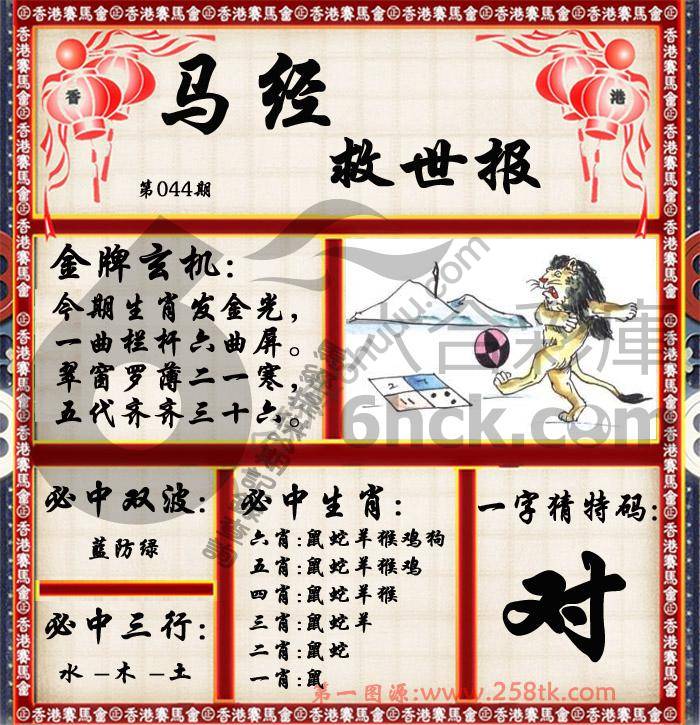 香港賽馬會
香 港
马经
救世报
第044期
金牌玄机:
今期生肖发金光，
一曲栏杆六曲屏。
翠窗罗薄二一寒，
五代齐齐三十六。
六合彩庫
6hck.com
必中双波:
蓝防绿
必中三行:
水－木－土
必中生肖:
六肖:鼠蛇羊猴鸡狗
五肖:鼠蛇羊猴鸡
四肖:鼠蛇羊猴
三肖:鼠蛇羊
二肖:鼠蛇
一肖:鼠
一字猜特码:
对
第一图源:www.258tk.com